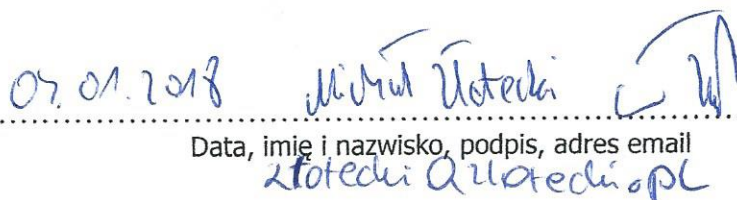 07.01.2018 Michał Złotecki
Data, imię i nazwisko, podpis, adres email
zlotecki@zlotecki.pl